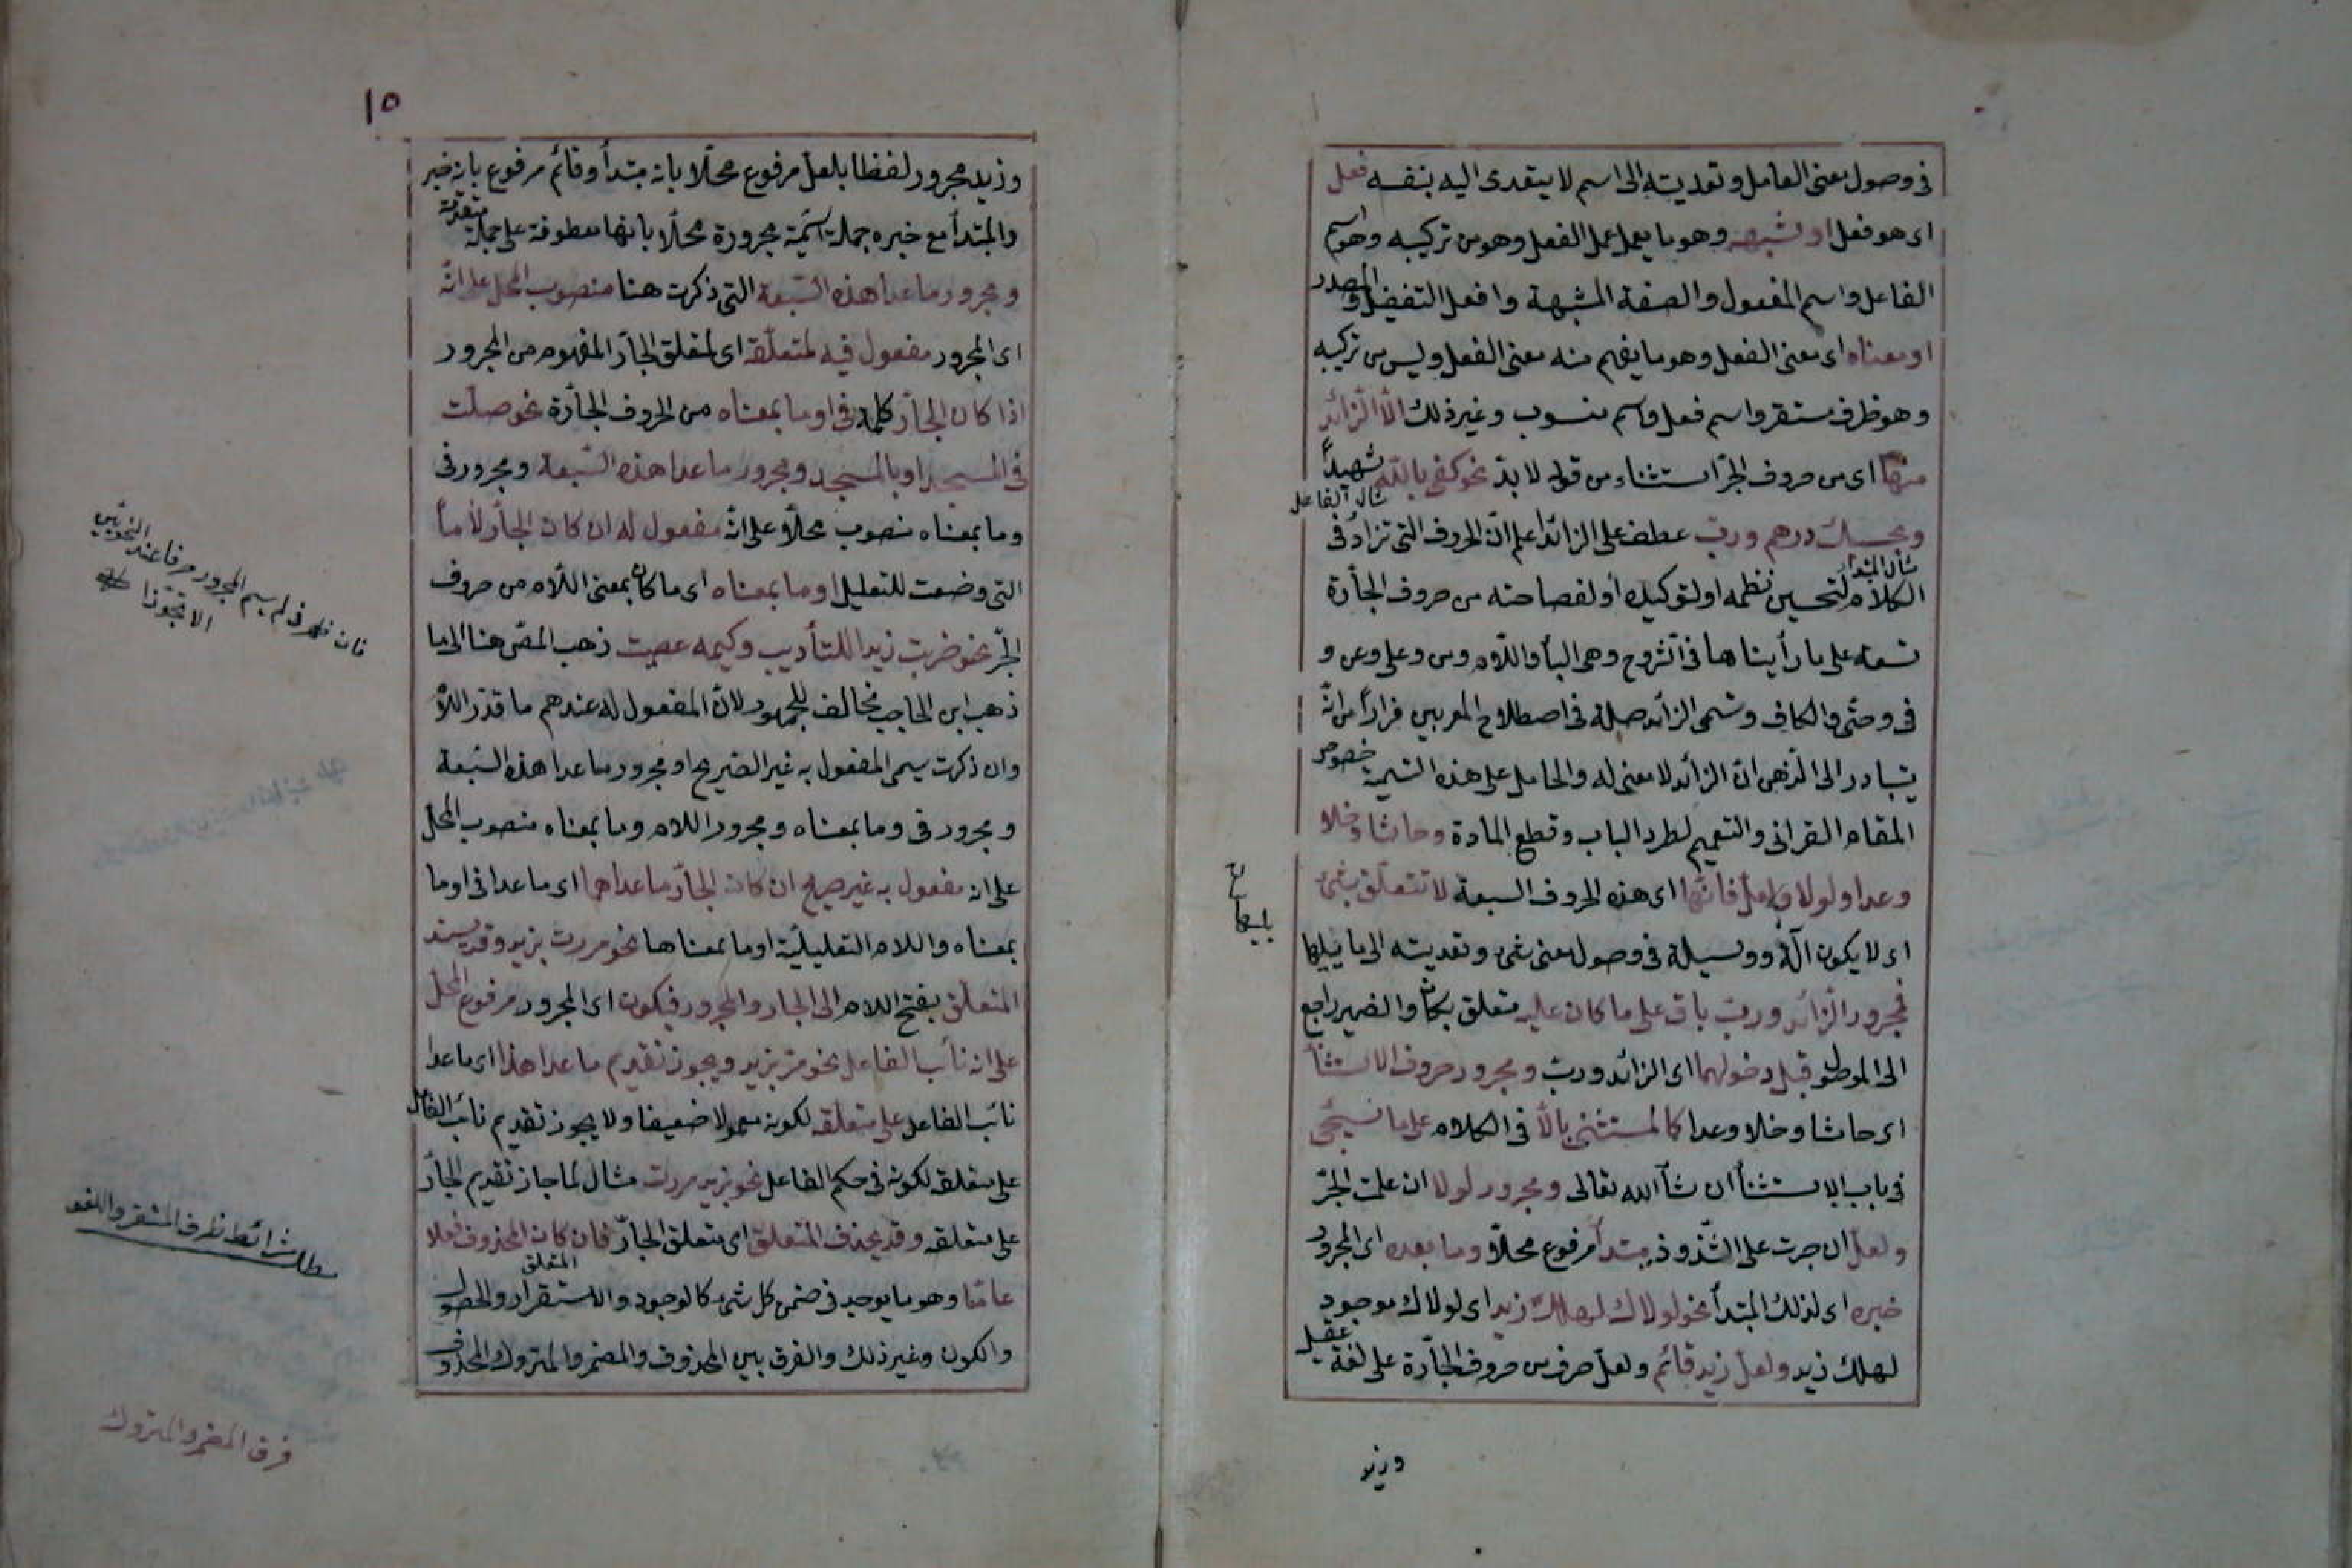 فى وصول معنى العامل وتعديته الى اسم لا يتعدى اليه بنفسه فعل
اى هو فعل او شبهه وهو ما يعمل عمل الفعل وهو من تركيبه وهو اسم
الفاعل واسم المفعول والصفة المشبهة وافعل التفضيل والمصدر
او معناه اى معنى الفعل وهو ما يفهم منه معنى الفعل وليس من تركيبه
وهو ظرف مستقر واسم فعل واسم منسوب وغير ذلك الا الزائد
منها اى من حروف الجر استثناء من قوله لا بد نحو كفى بالله شهيدا
مثال الفاعل
وبحسبك درهم ورب عطف على الزائد اعلم ان الحروف التى تزاد فى
مثال المبتدا
الكلام لتحسين نظمه او لتوكيده او لفصاحته من حروف الجارة
تسعة على ما رأيناها فى الشروح وهى الباء واللام ومن وعلى وعن و
فى وحتى والكاف وتسمى الزائد صلة فى اصطلاح المعربين فرارا من انه
يتبادر الى الذهن ان الزائد لا معنى له والحامل على هذه التسمية خصوص
المقام القرانى والتعميم لطرد الباب وقطع المادة وحاشا وخلا
وعدا ولولا ولعل فانها اى هذه الحروف السبعة لا تتعلق بشئ
اى لا يكون آلة ووسيلة فى وصول معنى شئ وتعديته الى ما يليها
فمجرور الزائد ورب باق على ما كان عليه متعلق بكان والضمير راجع
الى الموصول قبل دخولهما اى الزائد ورب ومجرور حروف الاستثنا
اى حاشا وخلا وعدا كالمستثنى بالا فى الكلام على ما سيجئ
فى باب الاستثنأ ان شآ الله تعالى ومجرور لولا ان عملت الجر
ولعل ان جرت على الشذوذ مبتدأ مرفوع محلا وما بعده اى المجرور
خبره اى لذلك المبتدأ نحو لولاك لهلك زيد اى لولاك موجود
لهلك زيد ولعل زيد قائم ولعل حرف من حروف الجارة على لغة عقيل
وزيد
١٥
وزيد مجرور لفظا بلعل مرفوع محلا بانه مبتدأ وقائم مرفوع بانه خبر
والمبتدأ مع خبره جملة اسمية مجرورة محلا بانها معطوفة على جملة متقدمة
ومجرور ما عدا هذه السبعة التى ذكرت هنا منصوب المحل على انه
اى المجرور مفعول فيه لمتعلقه اى لمتعلق الجار المفهوم من المجرور
اذا كان الجار كلمة فى او ما بمعناه من الحروف الجارة نحو صليت
فى المسجد او بالمسجد ومجرور ما عدا هذه السبعة ومجرور فى
وما بمعناه منصوب محلا على انه مفعول له ان كان الجار لاما
التى وضعت للتعليل او ما بمعناه اى ما كان بمعنى اللام من حروف
الجر نحو ضربت زيدا للتأديب وكيمه عصيت ذهب المص هنا الى ما
ذهب ابن الحاجب مخالف للجمهور لان المفعول له عندهم ما قدر اللام
وان ذكرت يسمى المفعول به غير الصريح او مجرور ما عدا هذه السبعة
ومجرور فى وما بمعناه ومجرور اللام وما بمعناه منصوب المحل
على انه مفعول به غير صريح ان كان الجار ما عداهما اى ما عدا فى او ما
بمعناه واللام التعليلية او ما بمعناها نحو مررت بزيد وقد يسند
المتعلق بفتح اللام الى الجار والمجرور فيكون اى المجرور مرفوع المحل
على انه نائب الفاعل نحو مر بزيد ويجوز تقديم ما عدا هذا اى ما عدا
نائب الفاعل على متعلقه لكونه معمولا ضعيفا ولا يجوز تقديم نائب الفاعل
على متعلقه لكونه فى حكم الفاعل نحو بزيد مررت مثال لما جاز تقديم الجار
على متعلقه وقد يحذف المتعلق اى متعلق الجار فان كان المحذوف فعلا
المتعلق
عاما وهو ما يوجد فى ضمن كل شئ كالوجود والاستقرار والحصول
والكون وغير ذلك والفرق بين المحذوف والمضمر والمتروك المحذوف
لم يسم المجرور حرفا عند النحويين
الا تجوزا
مطلب شرائط ظرف المستقر واللغو
فرق المضمر والمتروك